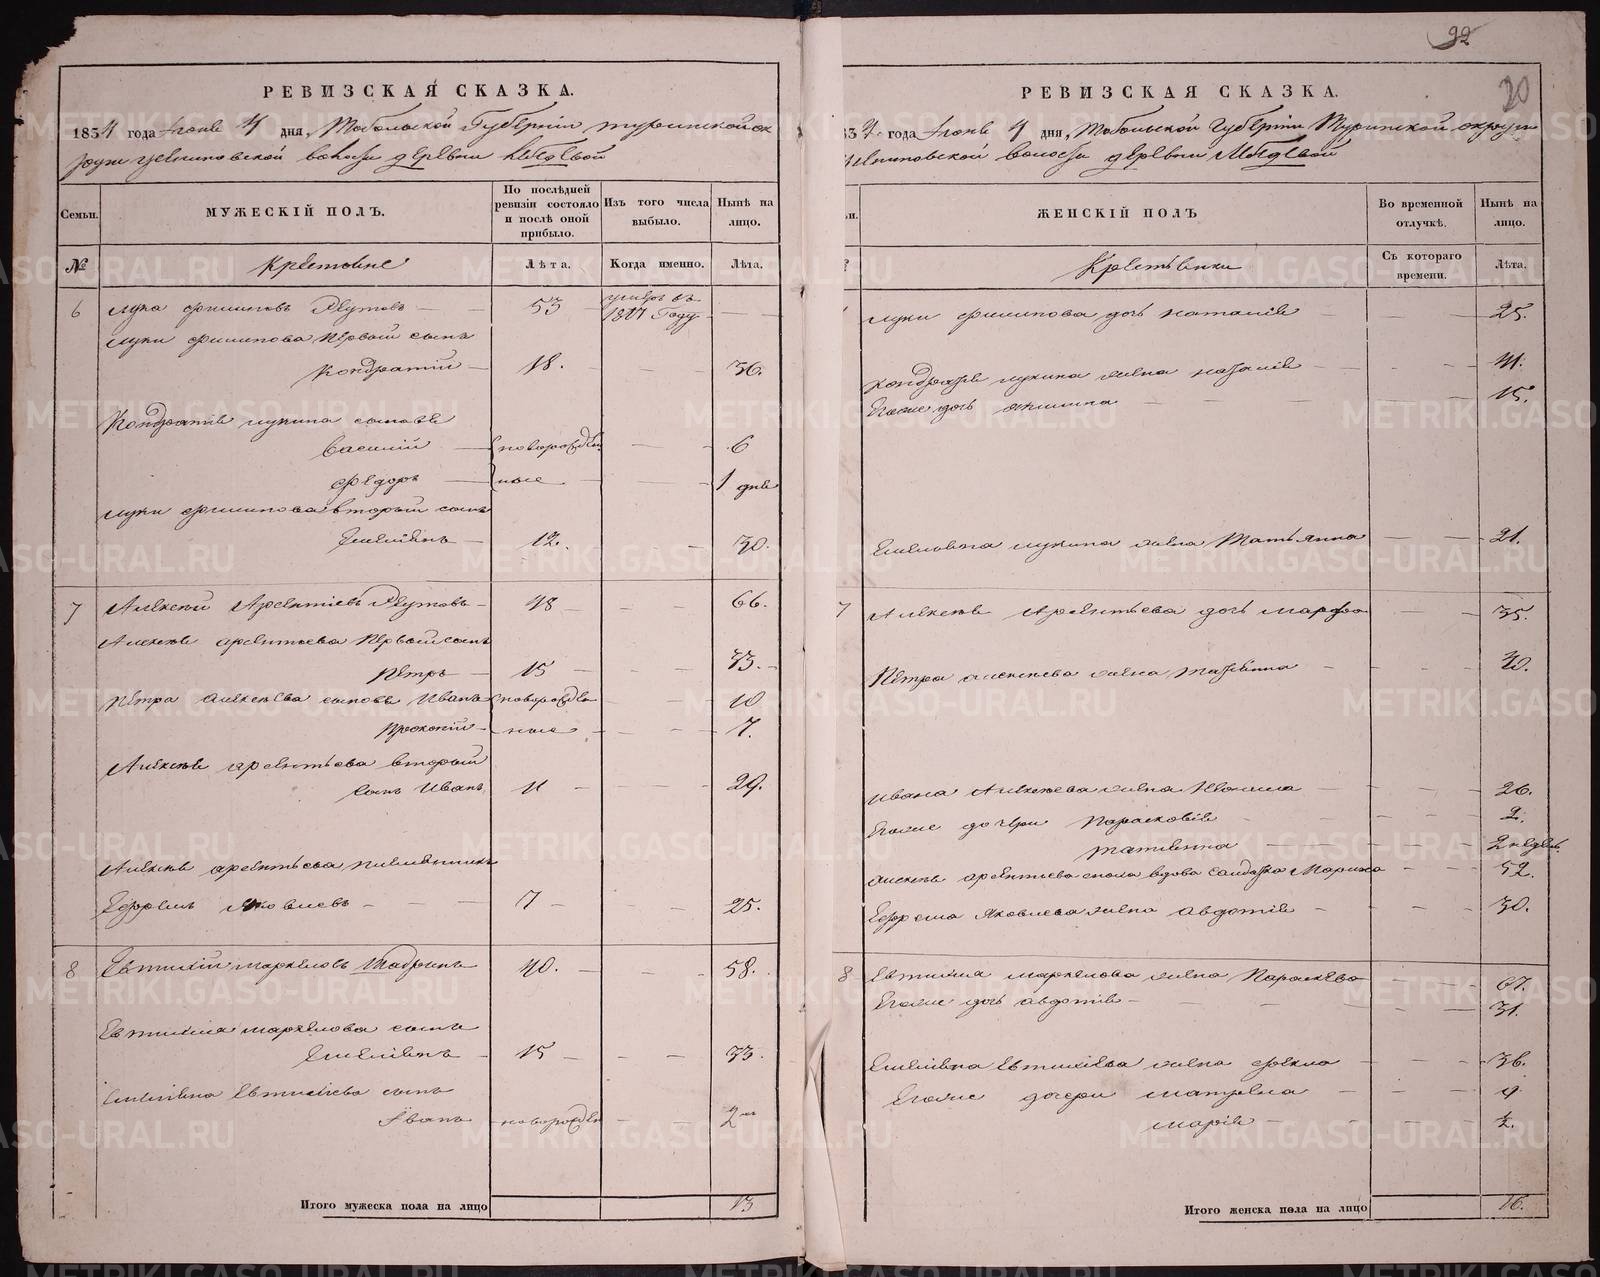 РЕВИЗСКАЯ СКАЗКА.
1834 года Июня 4 дня, Тобольской Губерніи Туринской ок
руги волости деревни
Семьи.
МУЖЕСКІЙ ПОЛЪ.
По послѣдней ревизіи состояло и послѣ оной прибыло.
Изъ того числа выбыло.
Нынѣ на лицо.
№
Крестьяне
Лѣта.
Когда именно.
Лѣта.
6 Лука Филиповъ Реутовъ 53 умеръ въ 1817 Году
Луки Филипова первый сынъ
Кондратій 18. 36.
Кондратія Лукина сыновья
Василій новорожден 6
Федоръ ные 1 дня
Луки Филипова второй сынъ
Емельянъ 12. 30.
7 Алексѣй Арефьевъ Реутовъ 48 66.
Алексѣя первый сынъ
Петръ 15 33.
Петра Алексѣева сыновья Иванъ новорожден 10
Прокопій ные 7.
Алексѣя второй
сынъ Иванъ 11 29.
Алексѣя племянникъ
Ефремъ Яковлевъ 7 25.
8 Евтихій Маркеловъ Шадринъ 40. 58.
Евтихія Маркелова сынъ
Емельянъ 15 33.
Емельяна Евтихіева сынъ
Иванъ новорожден 2
Итого мужеска пола на лицо 13
92
20
РЕВИЗСКАЯ СКАЗКА.
834 года Июня 4 дня, Тобольской Губерніи Туринской округи
волости деревни
ЖЕНСКІЙ ПОЛЪ
Во временной отлучкѣ.
Нынѣ на лицо.
Крестьянки
Съ котораго времени.
Лѣта.
Луки Филипова дочь Наталія 25.
Кондратія Лукина жена 41.
Егоже дочь 15.
Емельяна Лукина жена Татьянна 21.
7 Алексѣя дочь Марфа 35.
Петра Алексѣева жена 40.
Ивана Алексѣева жена 26.
Егоже дочери Парасковія 2.
Татіянна 2 недѣль
Алексѣя вдова Салдатка Марина 52.
Ефрема Яковлева жена Авдотія 30.
8 Евтихія Маркелова жена Параскева 67.
Егоже дочь Авдотія 31.
Емельяна Евтихіева жена Фекла 36.
Егоже дочери Матрена 9
Марія ½.
Итого женска пола на лицо 16.
METRIKI.GASO-URAL.RU